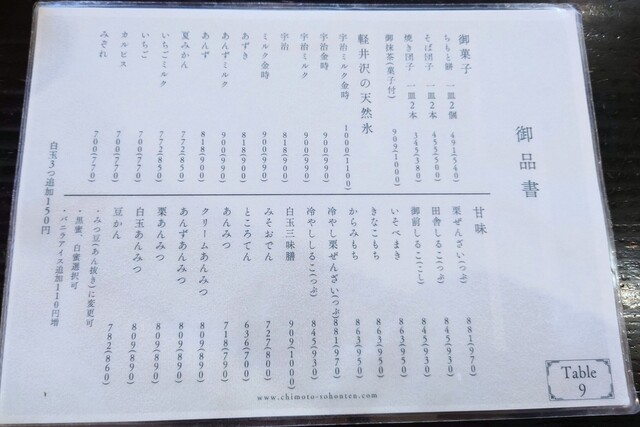 御品書
御菓子
ちもと餅 一皿2個 491(540)
そば団子 一皿2本 455(500)
焼き団子 一皿2本 345(380)
御抹茶(菓子付) 909(1000)
軽井沢の天然氷
宇治ミルク金時 1000(1100)
宇治金時 900(990)
宇治ミルク 900(990)
宇治 818(900)
ミルク金時 900(990)
あずき 818(900)
あんずミルク 900(990)
あんず 818(900)
夏みかん 772(850)
いちごミルク 772(850)
いちご 700(770)
カルピス 700(770)
みぞれ 700(770)
白玉3つ追加150円
甘味
栗ぜんざい(つぶ) 881(970)
田舎しるこ(つぶ) 845(930)
御前しるこ(こし) 845(930)
いそべまき 863(950)
きなこもち 863(950)
からみもち 863(950)
冷やし栗ぜんざい(つぶ) 881(970)
冷やししるこ(つぶ) 845(930)
白玉三味膳 909(1000)
みそおでん 727(800)
ところてん 636(700)
あんみつ 718(790)
クリームあんみつ 809(890)
あんずあんみつ 809(890)
栗あんみつ 809(890)
白玉あんみつ 809(890)
豆かん 782(860)
・みつ豆(あん抜き)に変更可
・黒蜜、白蜜選択可
・バニラアイス追加110円増
www.chimoto-sohonten.com
Table
9